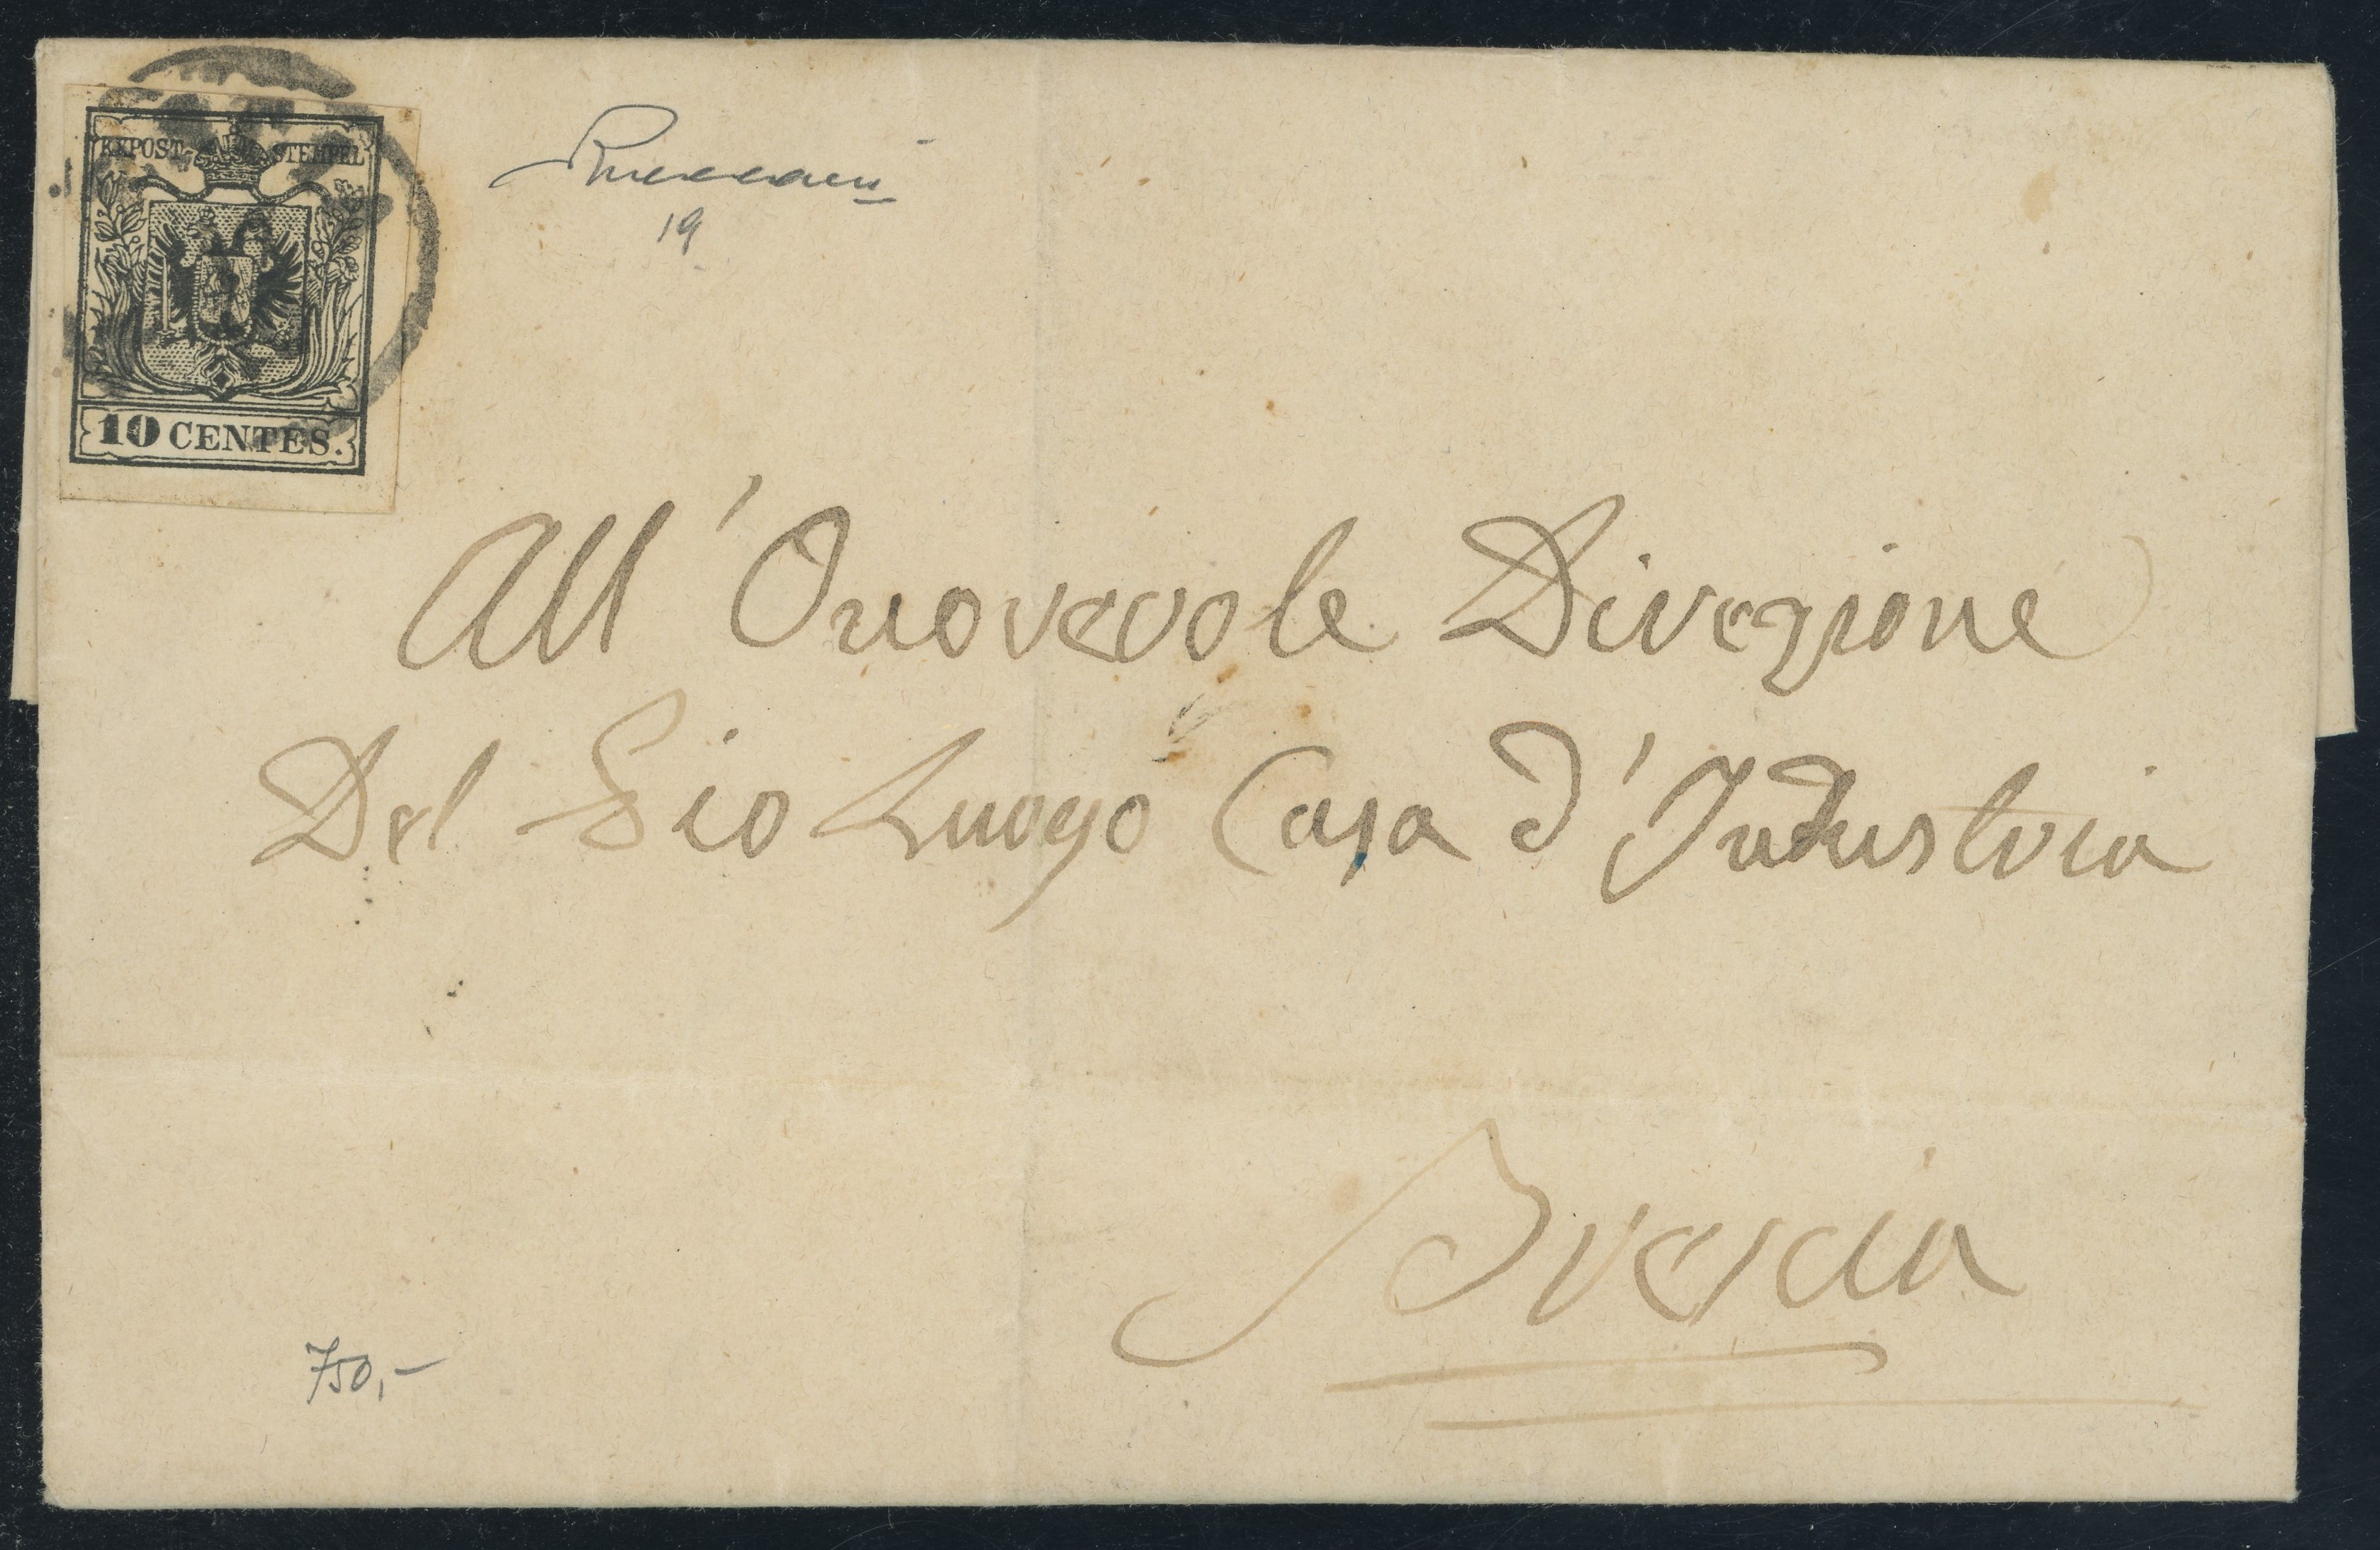 KKPOST-STEMPEL
10 CENTES.
19
All'Onorevole Direzione
Del Pio Luogo Casa d'Industria
Brescia
750,-